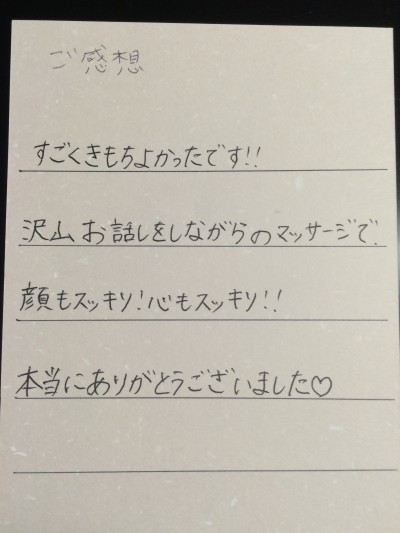 ご感想
すごくきもちよかったです!!
沢山お話しをしながらのマッサージで、
顔もスッキリ!心もスッキリ!!
本当にありがとうございました♡